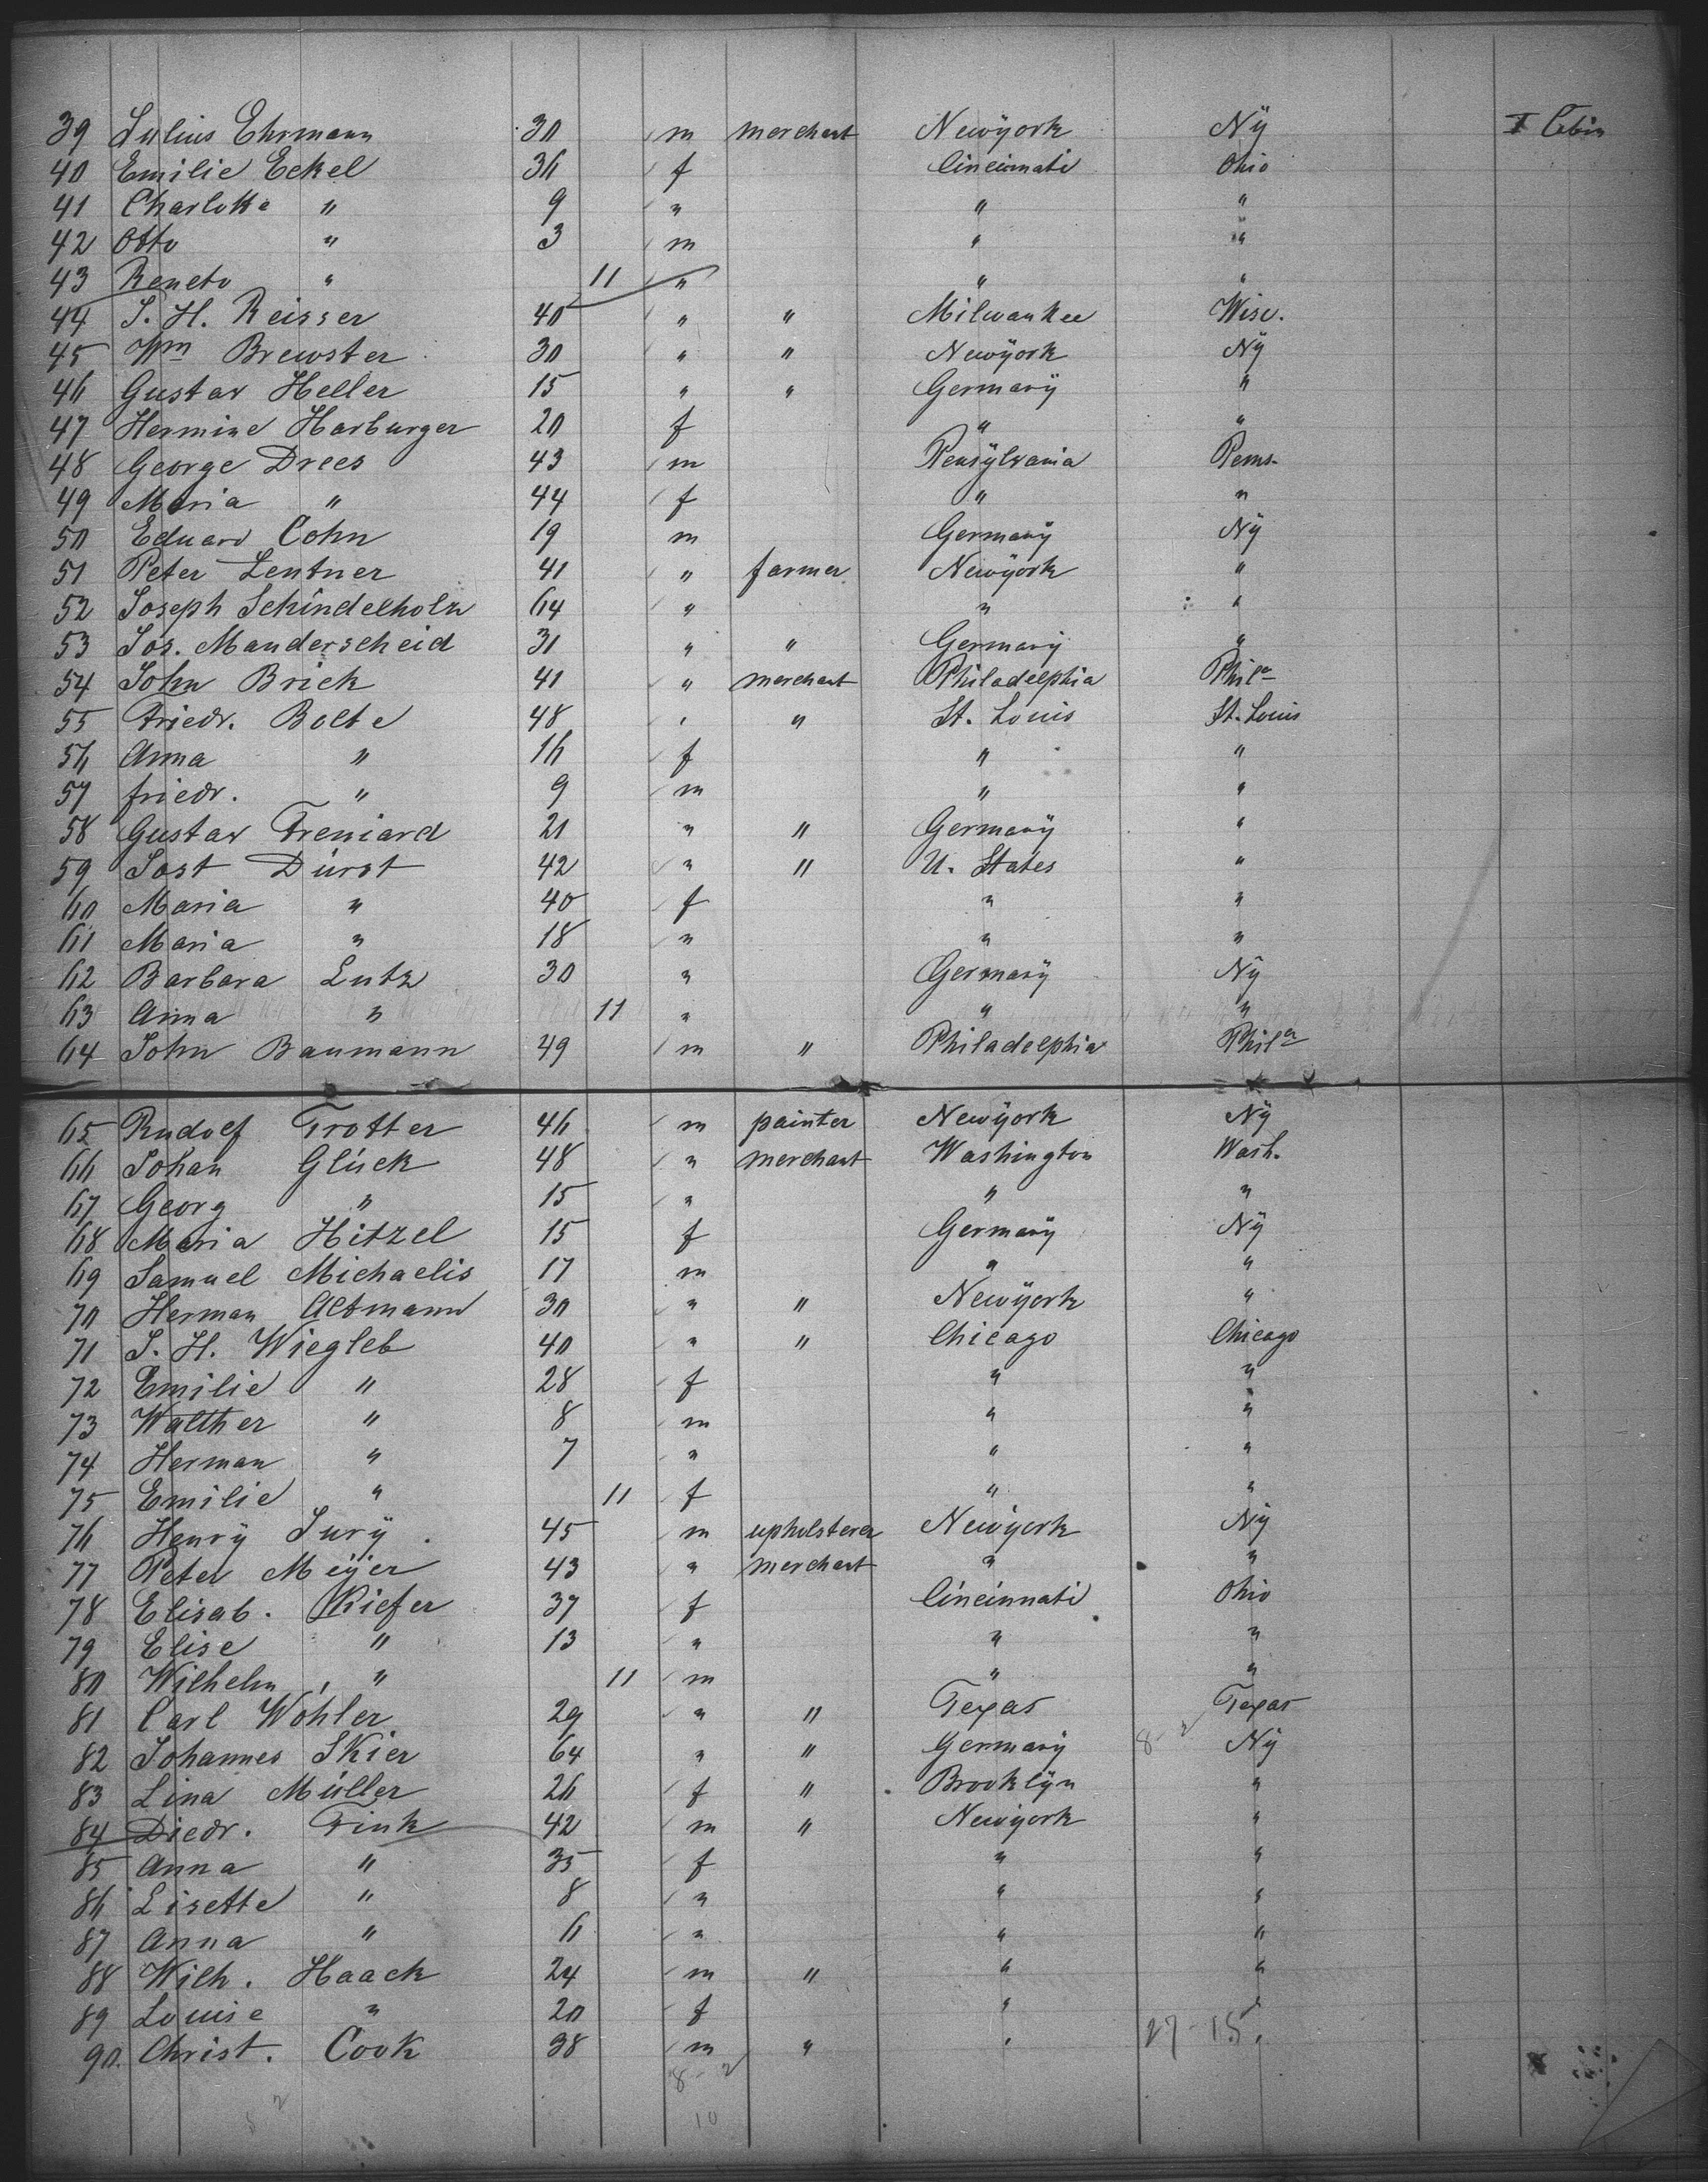 39 Julius Ehrmann 30 m merchant Newÿork Nÿ I Cabin
40 Emilie Eckel 36 f Cincinnati Ohio
41 Charlotte " 9 " " "
42 Otto " 3 m " "
43 Reneto " 11 " " "
44 J. H. Reisser 40 " " Milwaukee Wisc.
45 Wm Brewster 30 " " Newÿork Nÿ
46 Gustav Heller 15 " " Germanÿ "
47 Hermine Harburger 20 f " "
48 George Drees 43 m Pensÿlvania Penns.
49 Maria " 44 f " "
50 Eduard Cohn 19 m Germanÿ Nÿ
51 Peter Lentner 41 " farmer Newÿork "
52 Joseph Schindelholz 64 " " "
53 Jos. Manderscheid 31 " " Germanÿ "
54 John Brick 41 " merchant Philadelphia Phila
55 Friedr. Bolte 48 " " St. Louis St. Louis
56 Anna " 16 f " "
57 friedr. " 9 m " "
58 Gustav Freniard 21 " " Germanÿ "
59 Jost Dürst 42 " " U. States "
60 Maria " 40 f " "
61 Maria " 18 " " "
62 Barbara Lutz 30 " Germanÿ Nÿ
63 Anna " 11 " " "
64 John Baumann 49 m " Philadelphia Phila
65 Rudolf Trotter 46 m painter Newÿork Nÿ
66 Johan Glück 48 " merchant Washington Wash.
67 Georg " 15 " " "
68 Maria Hitzel 15 f Germanÿ Nÿ
69 Samuel Michaelis 17 m " "
70 Herman Altmann 30 " " Newÿork "
71 J. H. Wiegleb 40 " " Chicago Chicago
72 Emilie " 28 f " "
73 Walther " 8 m " "
74 Herman " 7 " " "
75 Emilie " 11 f " "
76 Henrÿ Jurÿ 45 m upholsterer Newÿork Nÿ
77 Peter Meÿer 43 " merchant " "
78 Elisab. Kiefer 37 f Cincinnati Ohio
79 Elise " 13 " " "
80 Wilhelm " 11 m " "
81 Carl Wöhler 29 " " Texas Texas
82 Johannes Skier 64 " " Germanÿ 8-2 Nÿ
83 Lina Müller 26 f " Brooklÿn "
84 Diedr. Fink 42 m " Newÿork "
85 Anna " 35 f " "
86 Lisette " 8 " " "
87 Anna " 6 " " "
88 Wilh. Haack 24 m " " "
89 Louise " 20 f " "
90. Christ. Cook 38 m " " 27-15 "
8-2
10